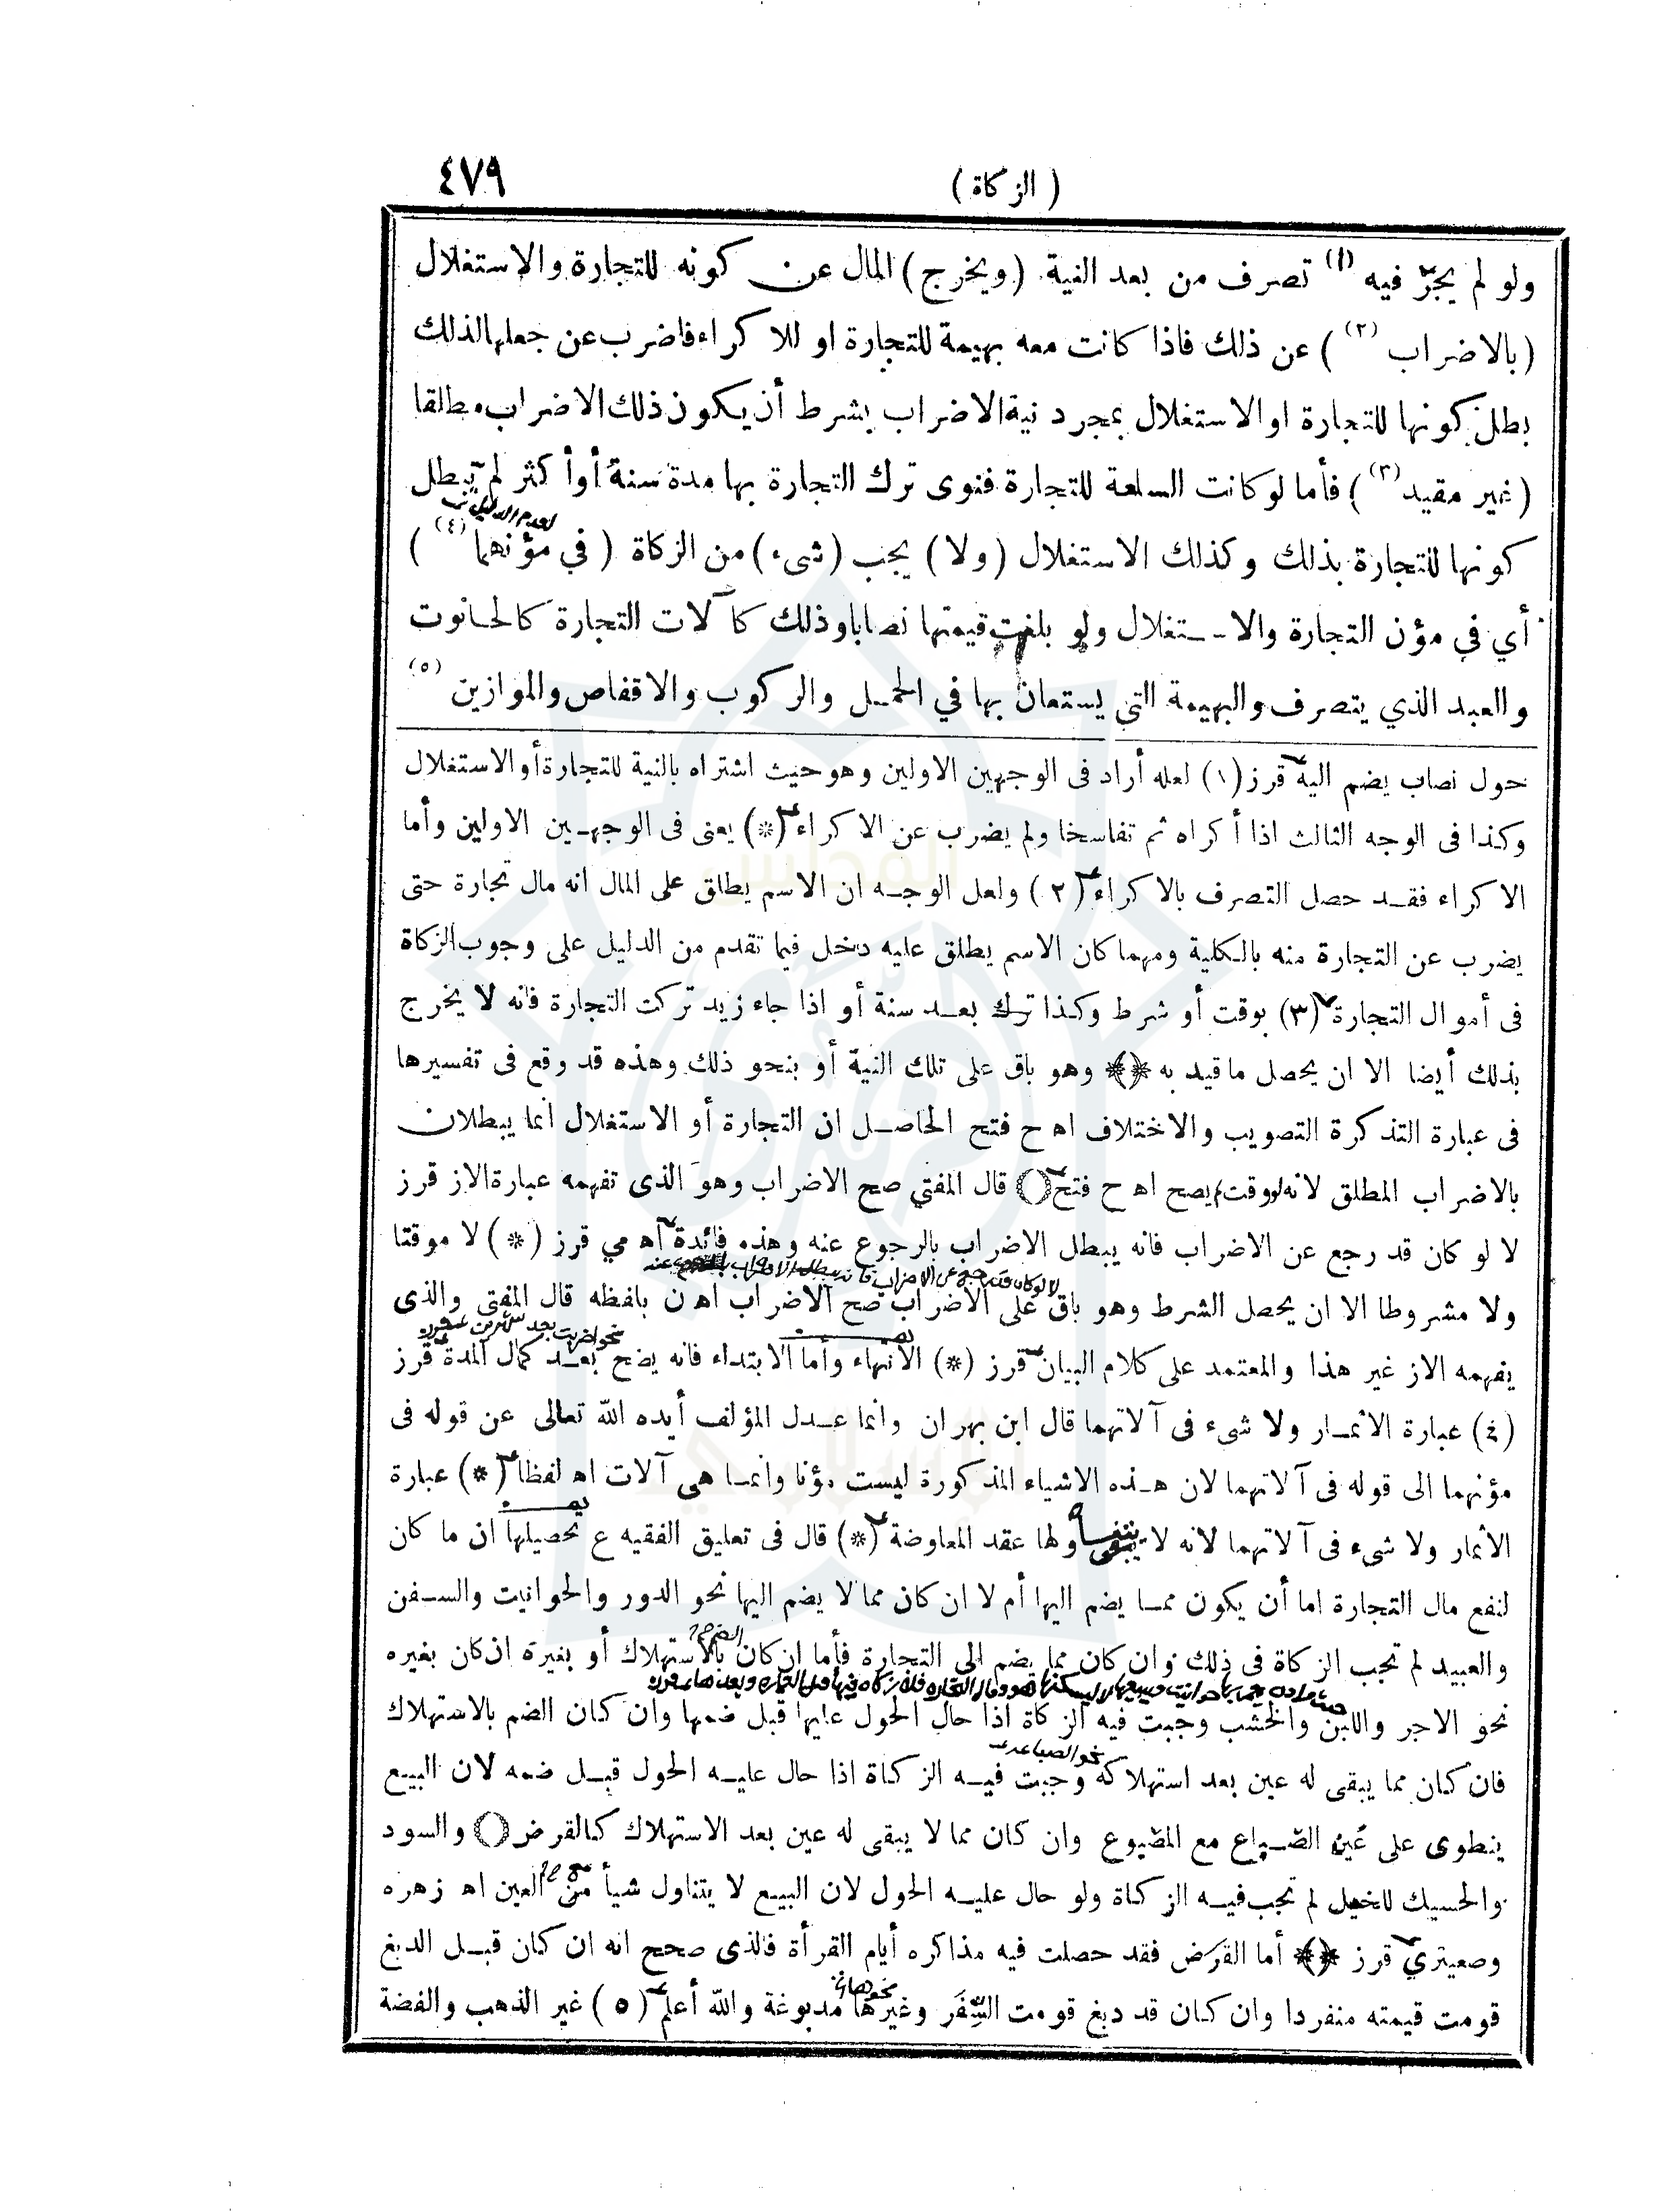 (الزكاة)
٤٧٩
ولو لم يجرّ فيه (١) تصرف من بعد النية (ويخرج) المال عن كونه للتجارة والاستغلال
(بالاضراب (٢)) عن ذلك فاذا كانت معه بهيمة للتجارة او للاكراء فاضرب عن جعلها لذلك
بطل كونها للتجارة او الاستغلال بمجرد نية الاضراب بشرط أن يكون ذلك الاضراب مطلقا
(غير مقيد (٣)) فأما لو كانت السلعة للتجارة فنوى ترك التجارة بها مدة سنة أو أكثر لم يبطل
لعدم الدليل
كونها للتجارة بذلك وكذلك الاستغلال (ولا) يجب (شىء) من الزكاة (في مؤنهما (٤))
أي في مؤن التجارة والاستغلال ولو بلغت قيمتها نصابا وذلك كآلات التجارة كالحانوت
والعبد الذي يتصرف والبهيمة التي يستعان بها في الحمل والركوب والاقفاص والموازين (٥)
حول نصاب يضم اليه قرز (١) لعله أراد فى الوجهين الاولين وهو حيث اشتراه بالنية للتجارة أو الاستغلال
وكذا فى الوجه الثالث اذا أكراه ثم تفاسخا ولم يضرب عن الاكراء (*) يعنى فى الوجهين الاولين وأما
الاكراء فقد حصل التصرف بالاكراء (٢) ولعل الوجه ان الاسم يطلق على المال انه مال تجارة حتى
يضرب عن التجارة منه بالكلية ومهما كان الاسم يطلق عليه دخل فيما تقدم من الدليل على وجوب الزكاة
فى أموال التجارة (٣) بوقت أو شرط وكذا ترك بعد سنة أو اذا جاء زيد تركت التجارة فانه لا يخرج
بذلك أيضا الا ان يحصل ما قيد به ﴿*﴾ وهو باق على تلك النية أو بنحو ذلك وهذه قد وقع فى تفسيرها
فى عبارة التذكرة التصويب والاختلاف اه ح فتح الحاصل ان التجارة أو الاستغلال انما يبطلان
بالاضراب المطلق لانه لو وقت لم يصح اه ح فتح () قال المفتي صح الاضراب وهو الذى تفهمه عبارة الاز قرز
لا لو كان قد رجع عن الاضراب فانه يبطل الاضراب بالرجوع عنه وهذه فائدة اه مي قرز (*) لا موقتا
لا لو كان قد رجع عن الاضراب فانه يبطل الاضراب عنه
ولا مشروطا الا ان يحصل الشرط وهو باق على الاضراب صح الاضراب اه ن بلفظه قال المفتي والذى
يفهمه الاز غير هذا والمعتمد على كلام البيان قرز (*) الانتهاء وأما الابتداء فانه يضح بعد كمال المدة قرز
(٤) عبارة الاثمار ولا شىء فى آلاتهما قال ابن بهران وانما عدل المؤلف أيده الله تعالى عن قوله فى
مؤنهما الى قوله فى آلاتهما لان هذه الاشياء المذكورة ليست مؤنا وانما هى آلات اه لفظا (*) عبارة
الاثمار ولا شىء فى آلاتهما لانه لا ولها عقد المعاوضة (*) قال فى تعليق الفقيه ع تحصيلها ان ما كان
لنفع مال التجارة اما أن يكون مما يضم اليها أم لا ان كان مما لا يضم اليها نحو الدور والحوانيت والسفن
والعبيد لم تجب الزكاة فى ذلك وان كان مما يضم الى التجارة فأما ان كان بالاستهلاك أو بغيره ان كان بغيره
نحو الاجر واللبن والخشب وجبت فيه الزكاة اذا حال الحول عليها قبل ضمها وان كان الضم بالاستهلاك
فان كان مما يبقى له عين بعد استهلاكه وجبت فيه الزكاة اذا حال عليه الحول قبل ضمه لان البيع
ينطوى على عين الصباع مع المصبوع وان كان مما لا يبقى له عين بعد الاستهلاك كالقرض () والسود
والحسيك للخيل لم تجب فيه الزكاة ولو حال عليه الحول لان البيع لا يتناول شيأ من العين اه زهره
وصعيتري قرز ﴿*﴾ أما القرض فقد حصلت فيه مذاكره أيام القرأة فالذى صحح انه ان كان قبل الدبغ
قومت قيمته منفردا وان كان قد دبغ قومت السفر وغيرها مدبوغة والله أعلم (٥) غير الذهب والفضة